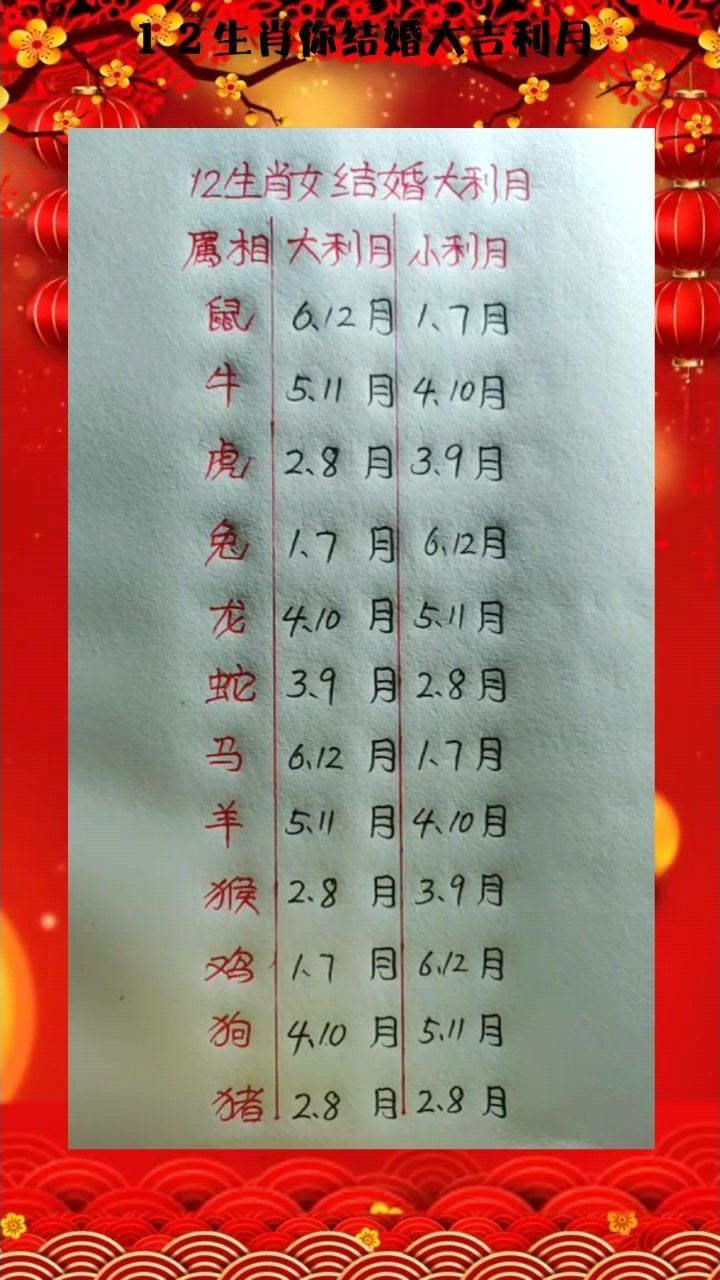 12生肖你结婚大吉利月
12生肖女结婚大利月
属相 大利月 小利月
鼠 6、12月 1、7月
牛 5、11月 4、10月
虎 2、8月 3、9月
兔 1、7月 6、12月
龙 4、10月 5、11月
蛇 3、9月 2、8月
马 6、12月 1、7月
羊 5、11月 4、10月
猴 2、8月 3、9月
鸡 1、7月 6、12月
狗 4、10月 5、11月
猪 2、8月 2、8月